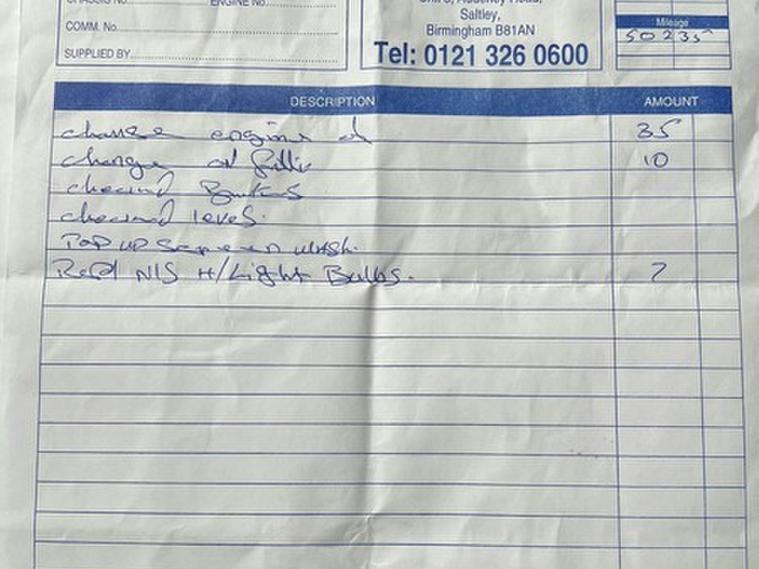 CHASSIS No. ENGINE No.
COMM. No.
SUPPLIED BY
Saltley,
Birmingham B81AN
Tel: 0121 326 0600
Mileage
50235
DESCRIPTION AMOUNT
change engine oil 35
change oil filter 10
checked Brakes
checked levels.
TOP UP screen wash.
Repl N/S H/Light Bulbs. 7